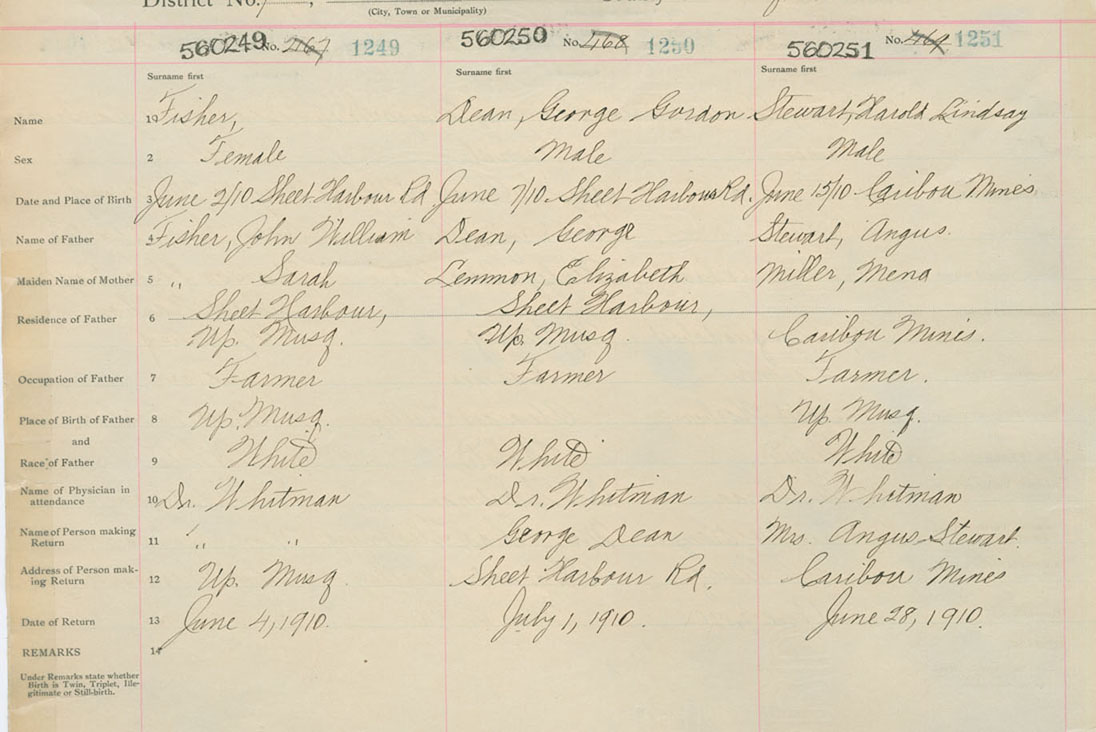 District No.
(City, Town or Municipality)
560249 No. 467 1249 560250 No. 468 1250 560251 No. 469 1251
Surname first Surname first Surname first
Name 1 Fisher, Dean, George Gordon Stewart, Harold Lindsay
Sex 2 Female Male Male
Date and Place of Birth 3 June 2/10 Sheet Harbour Rd June 7/10 Sheet Harbour Rd. June 15/10 Caribou Mines
Name of Father Fisher, John William Dean, George Stewart, Angus.
Maiden Name of Mother 5 " Sarah Lemmon, Elizabeth Miller, Mena
Residence of Father 6 Sheet Harbour, Sheet Harbour,
Up. Musq. Up. Musq. Caribou Mines.
Occupation of Father 7 Farmer Farmer Farmer.
Place of Birth of Father 8 Up. Musq. Up. Musq.
and
Race of Father 9 White White White
Name of Physician in
attendance 10 Dr. Whitman Dr. Whitman Dr. Whitman
Name of Person making
Return 11 " " George Dean Mrs. Angus Stewart.
Address of Person mak-
ing Return 12 Up. Musq. Sheet Harbour Rd. Caribou Mines
Date of Return 13 June 4, 1910. July 1, 1910. June 28, 1910.
REMARKS 14
Under Remarks state whether
Birth is Twin, Triplet, Ille-
gitimate or Still-birth.